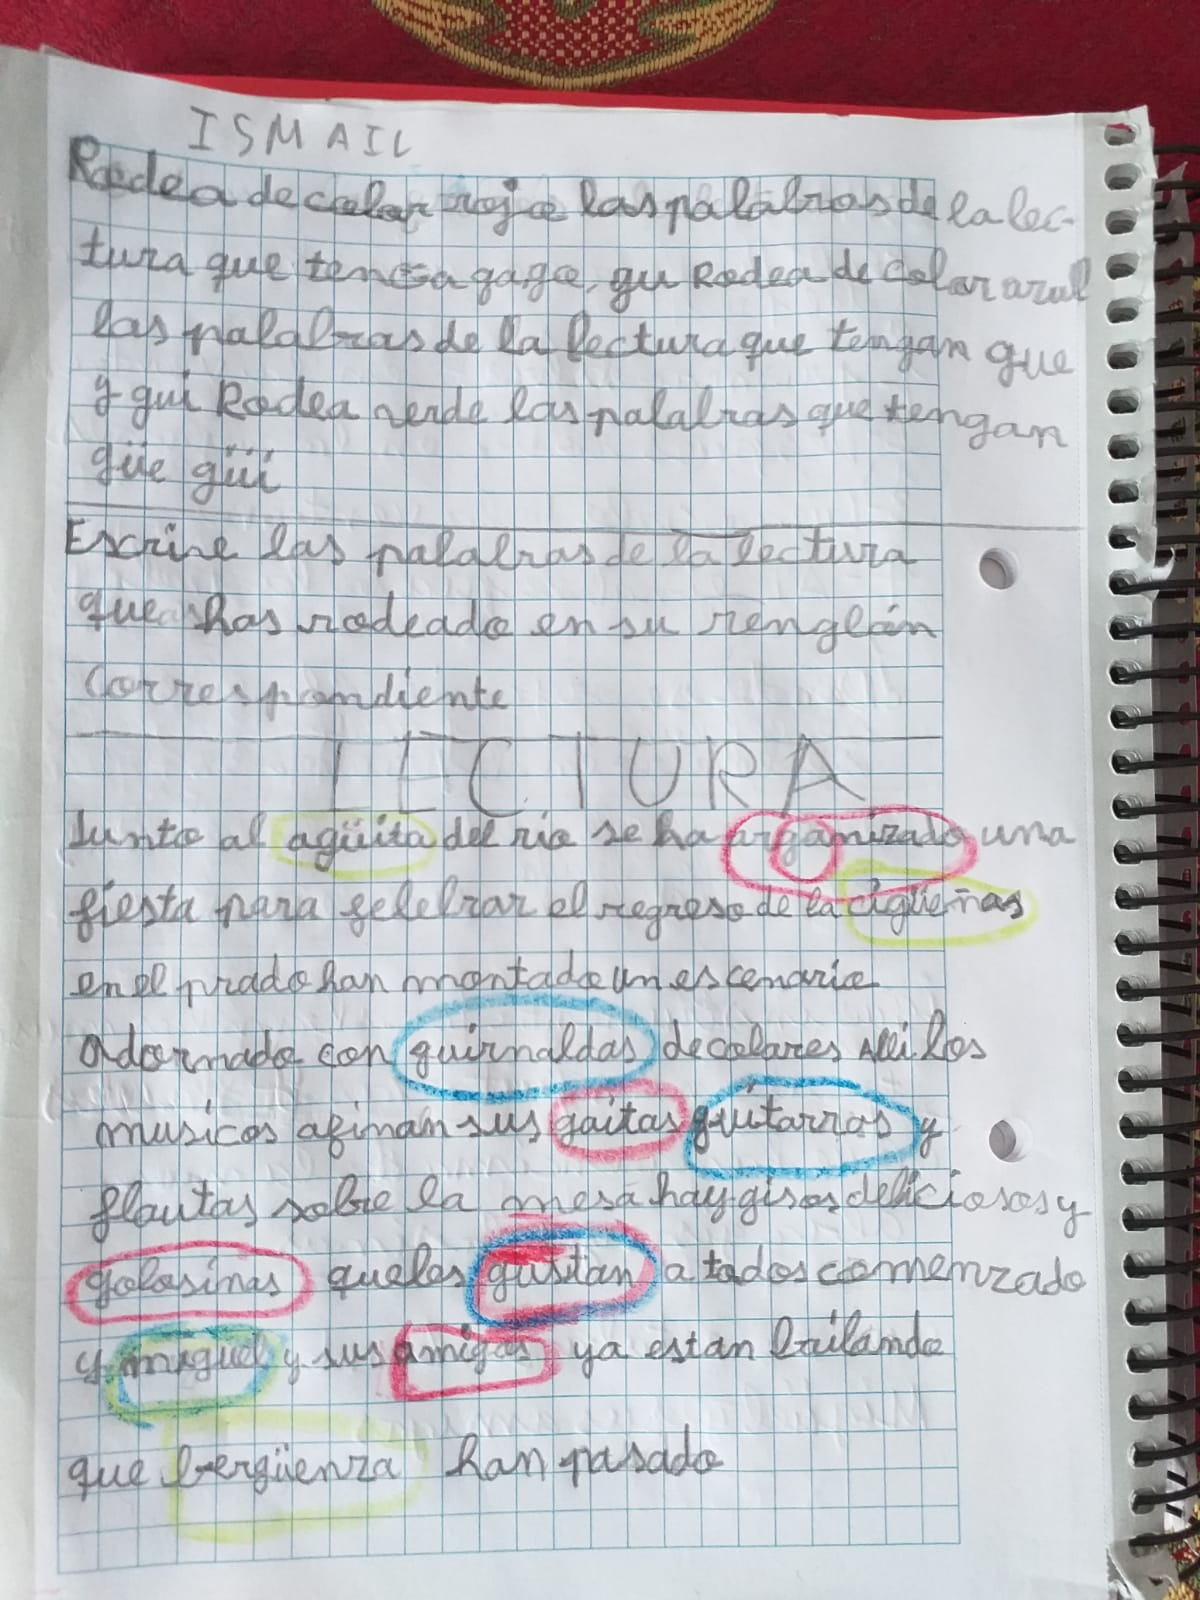 ISMAIL
Rodea de color rojo las palabras de la lec-
tura que tenga ga go, gu Rodea de color azul
las palabras de la lectura que tengan gue
y gui Rodea verde las palabras que tengan
güe güi
Escribe las palabras de la lectura
que has rodeado en su renglón
correspondiente
LECTURA
Junto al agüita del río se ha organizado una
fiesta para selebrar el regreso de la cigüeñas
en el prado han montado un escenario
adornado con guirnaldas de colores Alli los
musicos afinan sus gaitas guitarras y
flautas sobre la mesa hay gisos deliciosos y
golosinas que los gustan a todos comenzado
y miguel y sus amigos ya estan bailando
que bergüenza han pasado